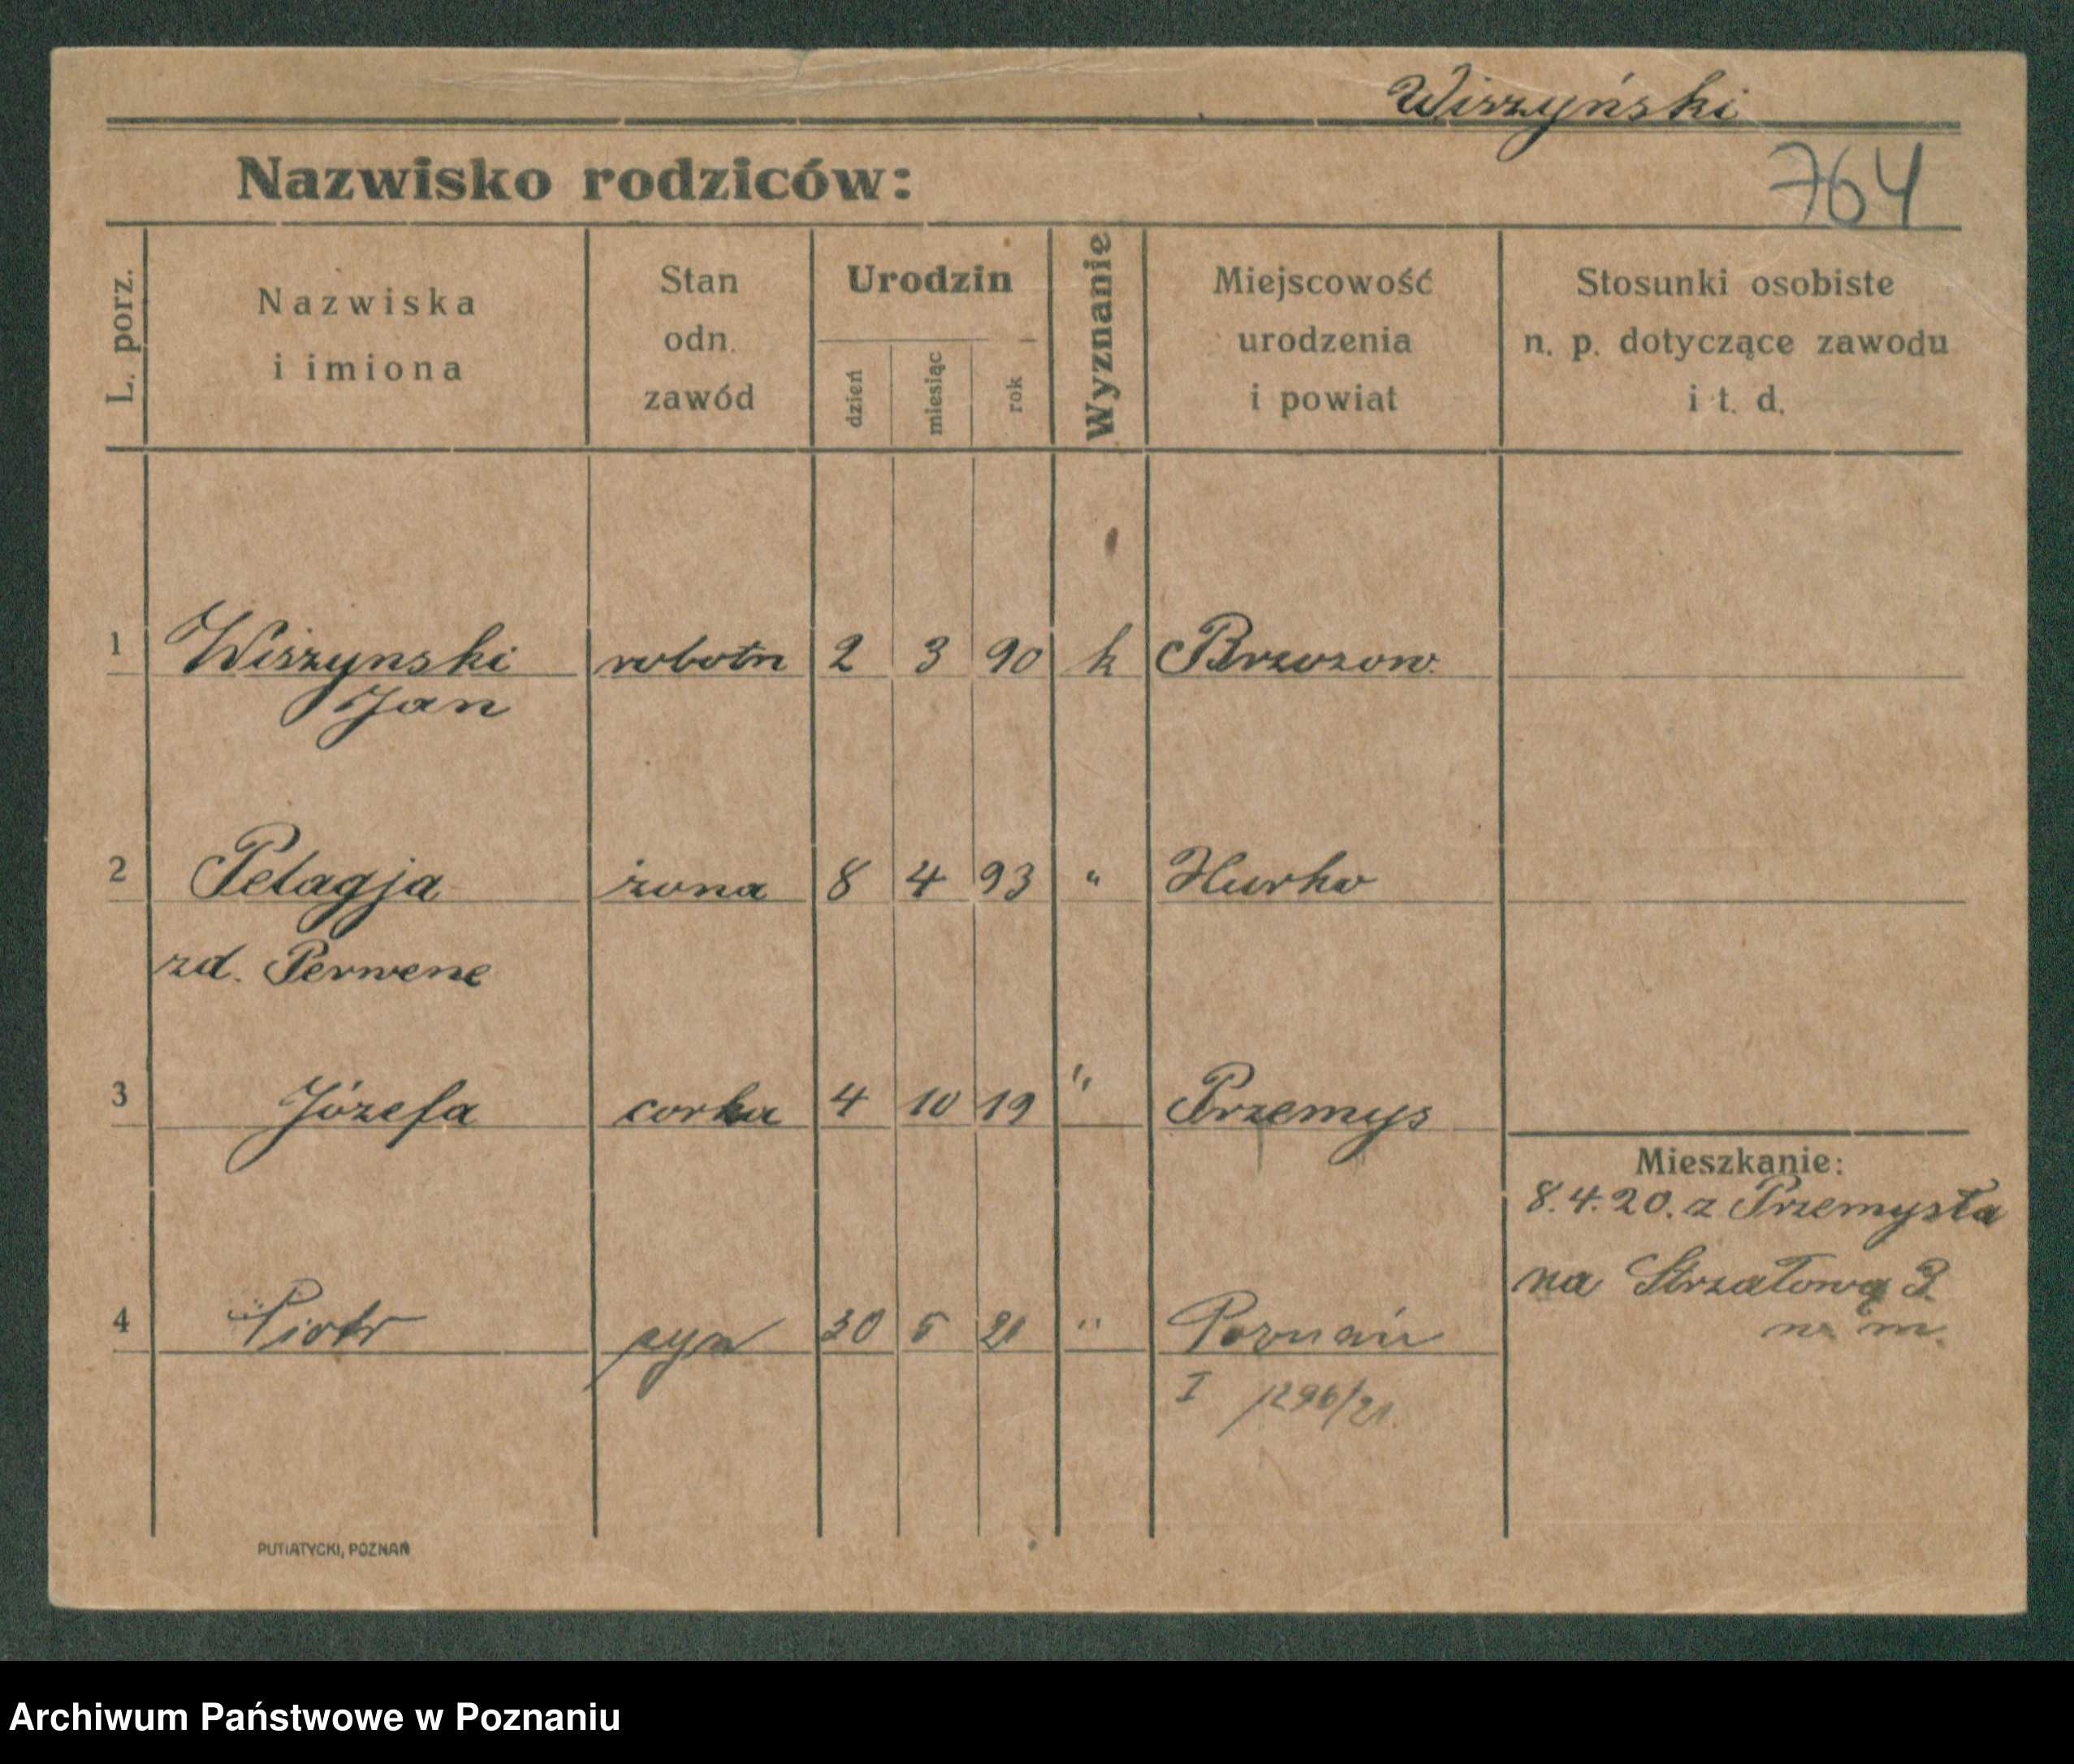 Wiszyński
Nazwisko rodziców:
764
L. porz.
Nazwiska
i imiona
Stan
odn.
zawód
Urodzin
dzień
miesiąc
rok
Wyznanie
Miejscowość
urodzenia
i powiat
Stosunki osobiste
n. p. dotyczące zawodu
i t. d.
1 Wiszynski robotn 2 3 90 k Brzozow.
Jan
2 Pelagja żona 8 4 93 " Hurko
zd. Perwene
3 Józefa corka 4 10 19 " Przemys
Mieszkanie:
8.4.20. z Przemysła
na Strzałową 3
n. m.
4 Piotr syn 30 5 21 " Poznań
I 1296/21.
PUTIATYCKI, POZNAŃ
Archiwum Państwowe w Poznaniu